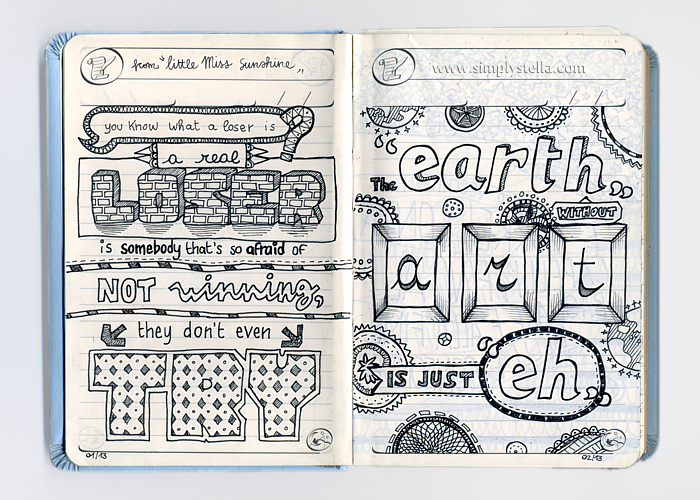 from "little Miss Sunshine"
you know what a loser is
a real
LOSER
is somebody that's so afraid of
NOT winning,
they don't even
TRY
01/13
www.simplystella.com
The "earth"
WITHOUT
art
IS JUST "eh"
02/13